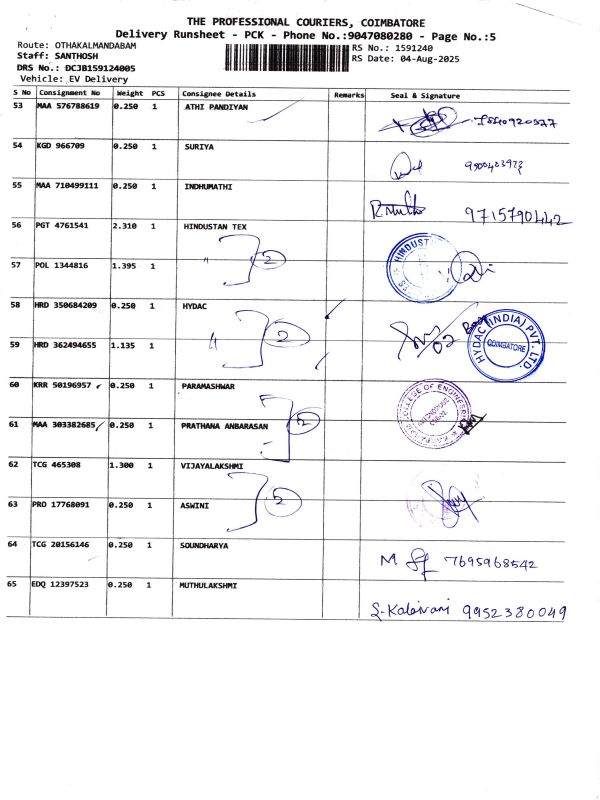 THE PROFESSIONAL COURIERS, COIMBATORE
Delivery Runsheet - PCK - Phone No.:9047080280 - Page No.:5
Route: OTHAKALMANDABAM
RS No.: 1591240
Staff: SANTHOSH
RS Date: 04-Aug-2025
DRS No.: DCJB159124005
Vehicle: EV Delivery
S No Consignment No Weight PCS Consignee Details Remarks Seal & Signature
53 MAA 576788619 0.250 1 ATHI PANDIYAN
54 KGD 966709 0.250 1 SURIYA
55 MAA 710499111 0.250 1 INDHUMATHI 9715790442
56 PGT 4761541 2.310 1 HINDUSTAN TEX
57 POL 1344816 1.395 1 " 2
58 HRD 350684209 0.250 1 HYDAC
HYDAC (INDIA) PVT. LTD. COIMBATORE
59 HRD 362494655 1.135 1 " 2
60 KRR 50196957 0.250 1 PARAMASHWAR
COLLEGE OF ENGINEERING
61 MAA 303382685 0.250 1 PRATHANA ANBARASAN 2
62 TCG 465308 1.300 1 VIJAYALAKSHMI
63 PRO 17768091 0.250 1 ASWINI 2
64 TCG 20156146 0.250 1 SOUNDHARYA 7695968542
65 EDQ 12397523 0.250 1 MUTHULAKSHMI S-Kalaivani 9952380049